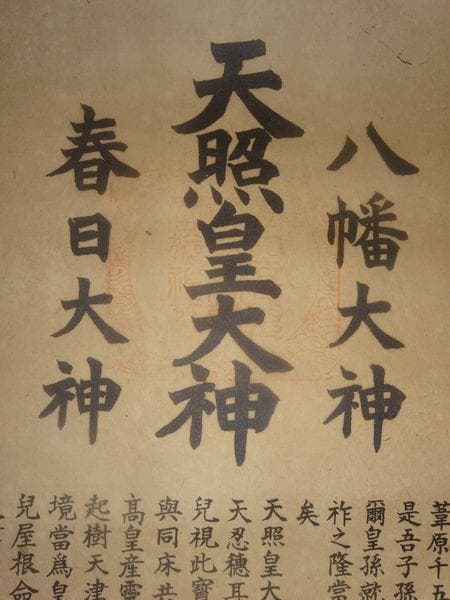 八幡大神
天照皇大神
春日大神
葦原千五
是吾子孫
爾皇孫就
祚之隆當
矣
天照皇大
天忍穗耳
兒視此寶
與同床共
髙皇産靈
起樹天津
境當爲皇
兒屋根命